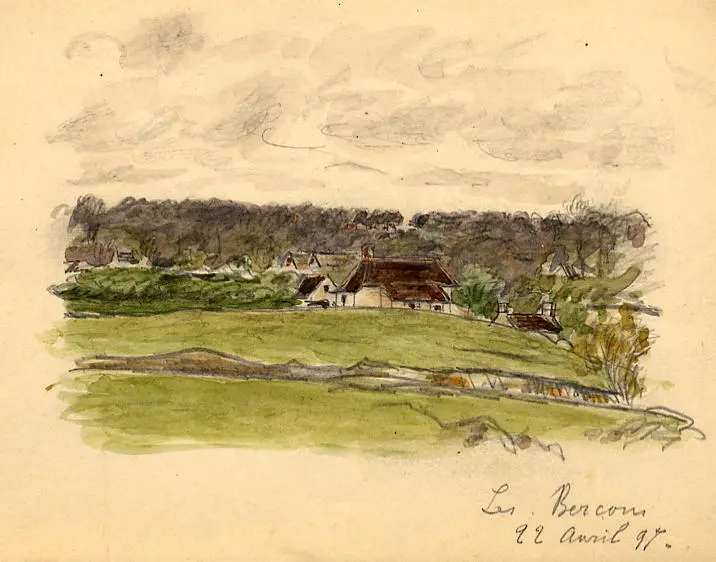 Les. Bercons
22 Avril 97.